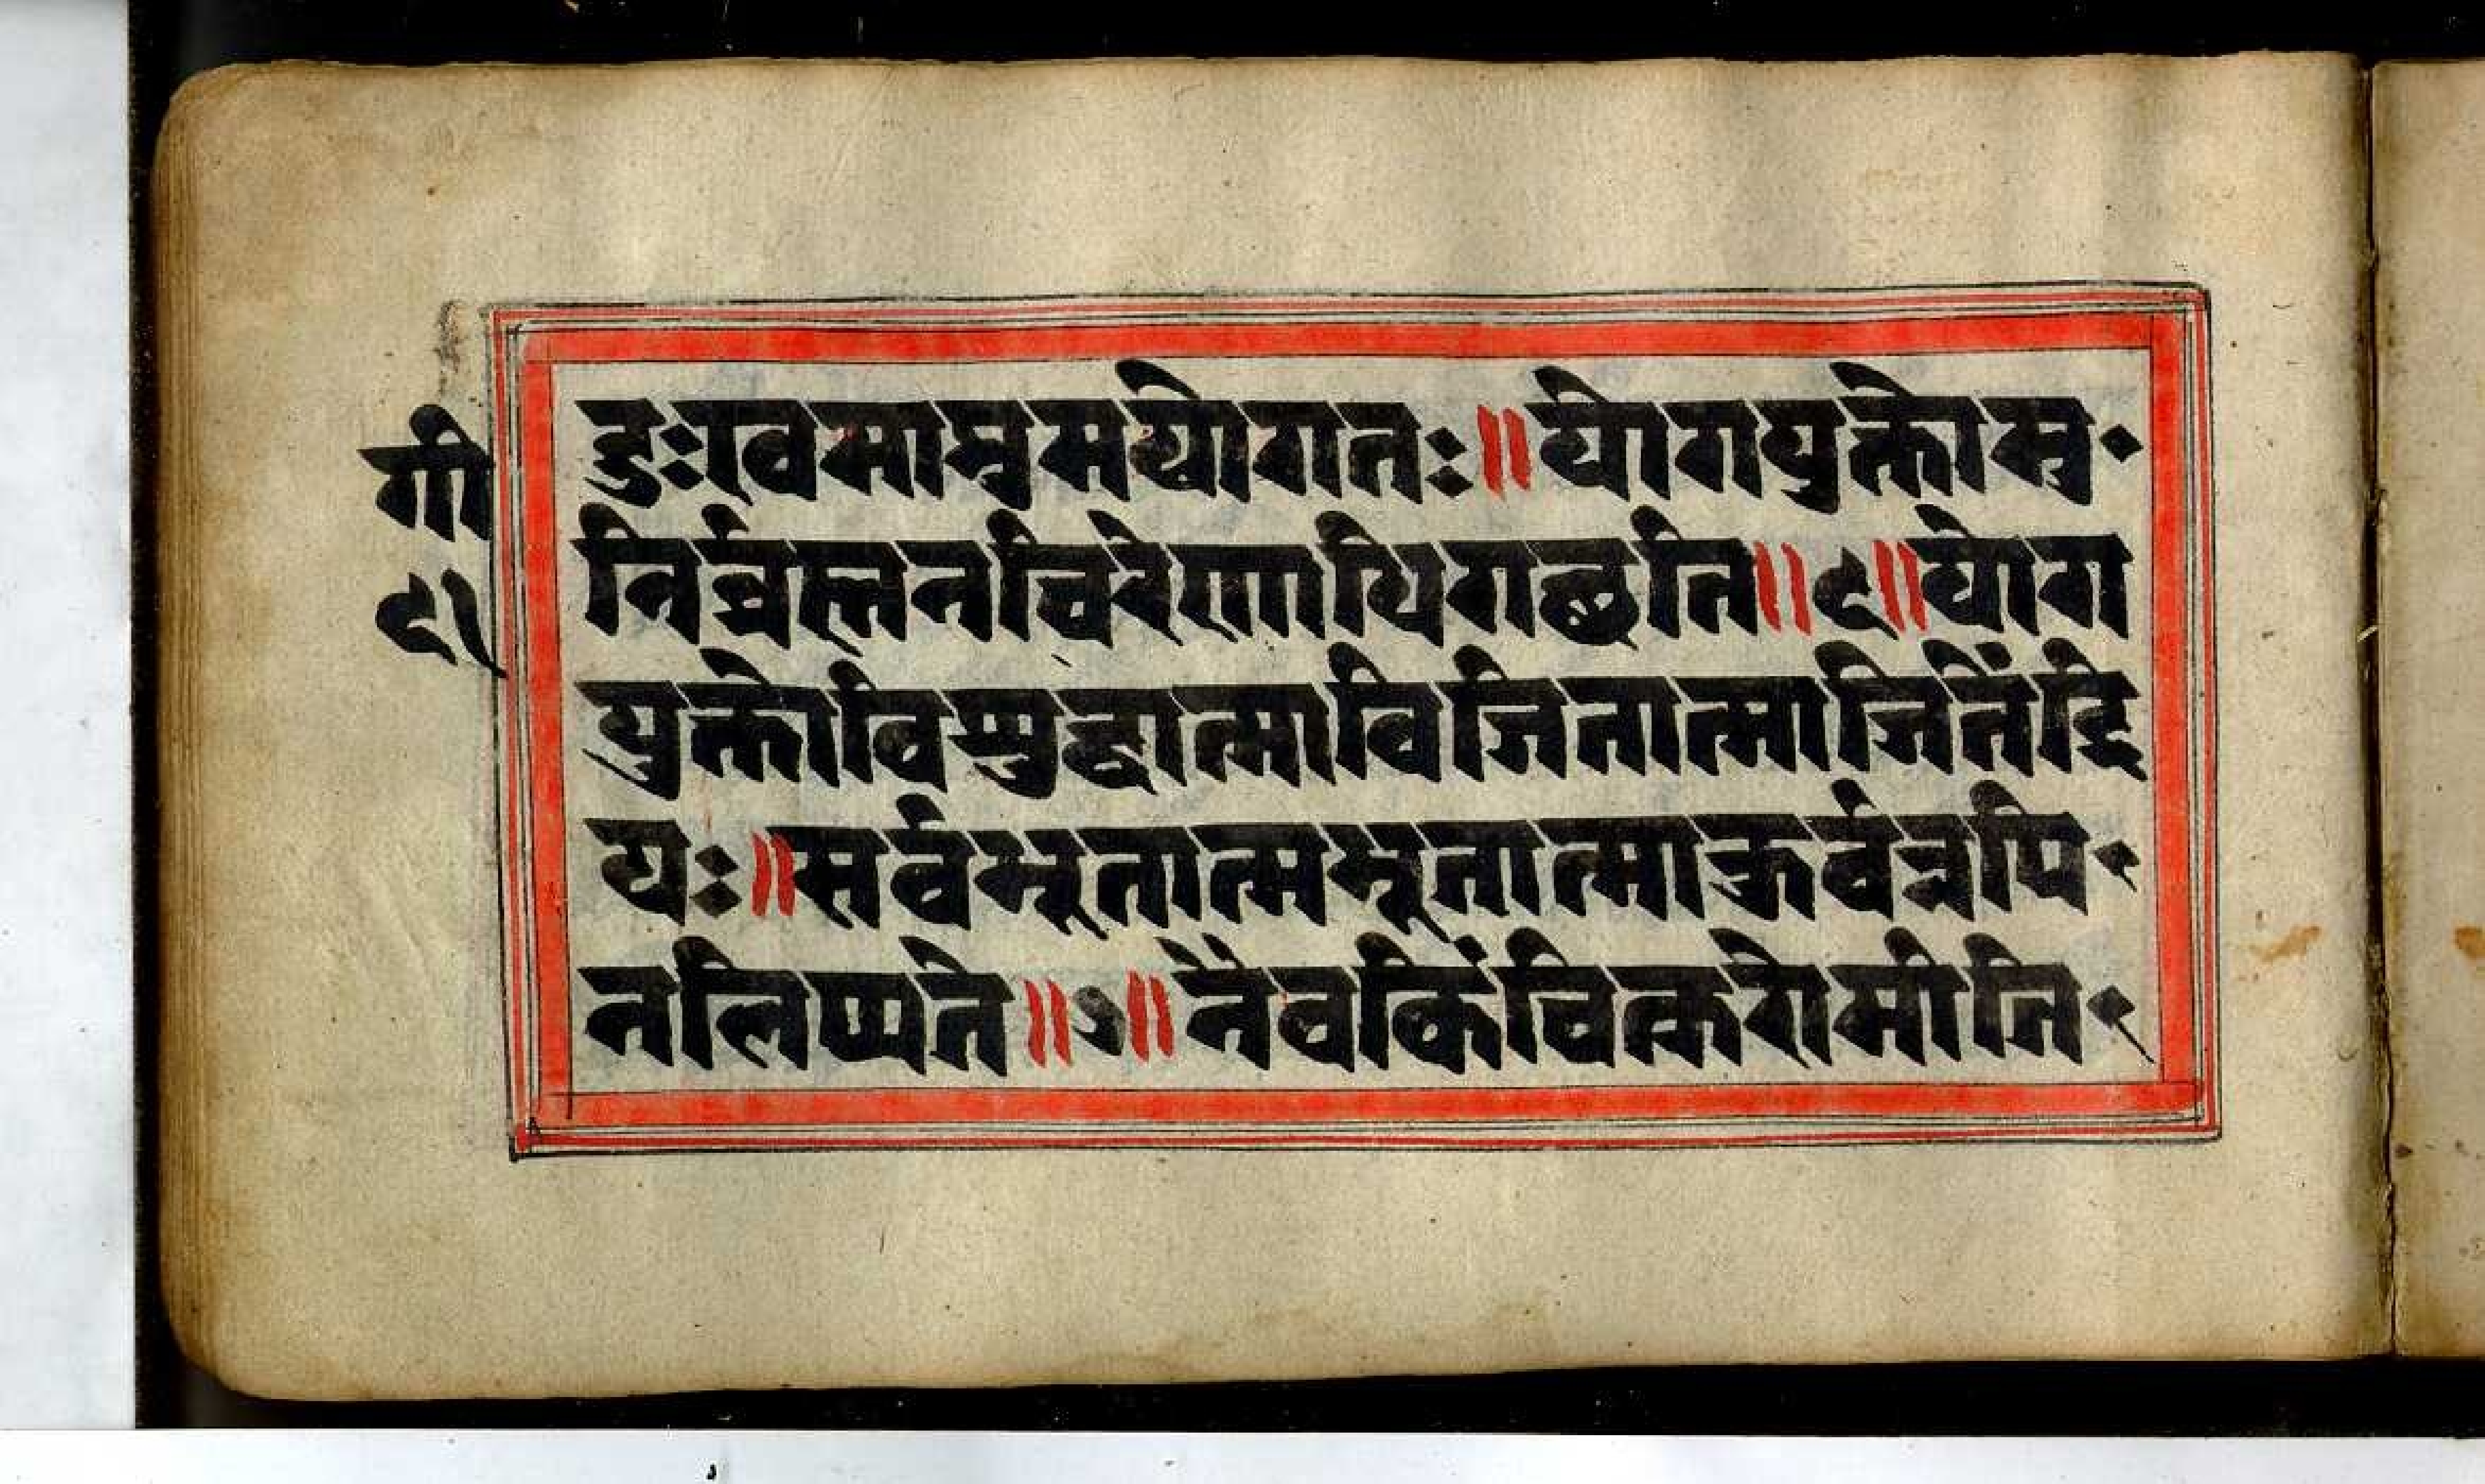 गी
९१
दुःखमाप्तुमयोगतः॥योगयुक्तोमु
निर्ब्रह्मनचिरेणाधिगछति॥६॥योग
युक्तोविशुद्धात्माविजितात्माजितेंद्रि
यः॥सर्वभूतात्मभूतात्माकुर्वन्नपि
नलिप्यते॥७॥नैवकिंचित्करोमीति